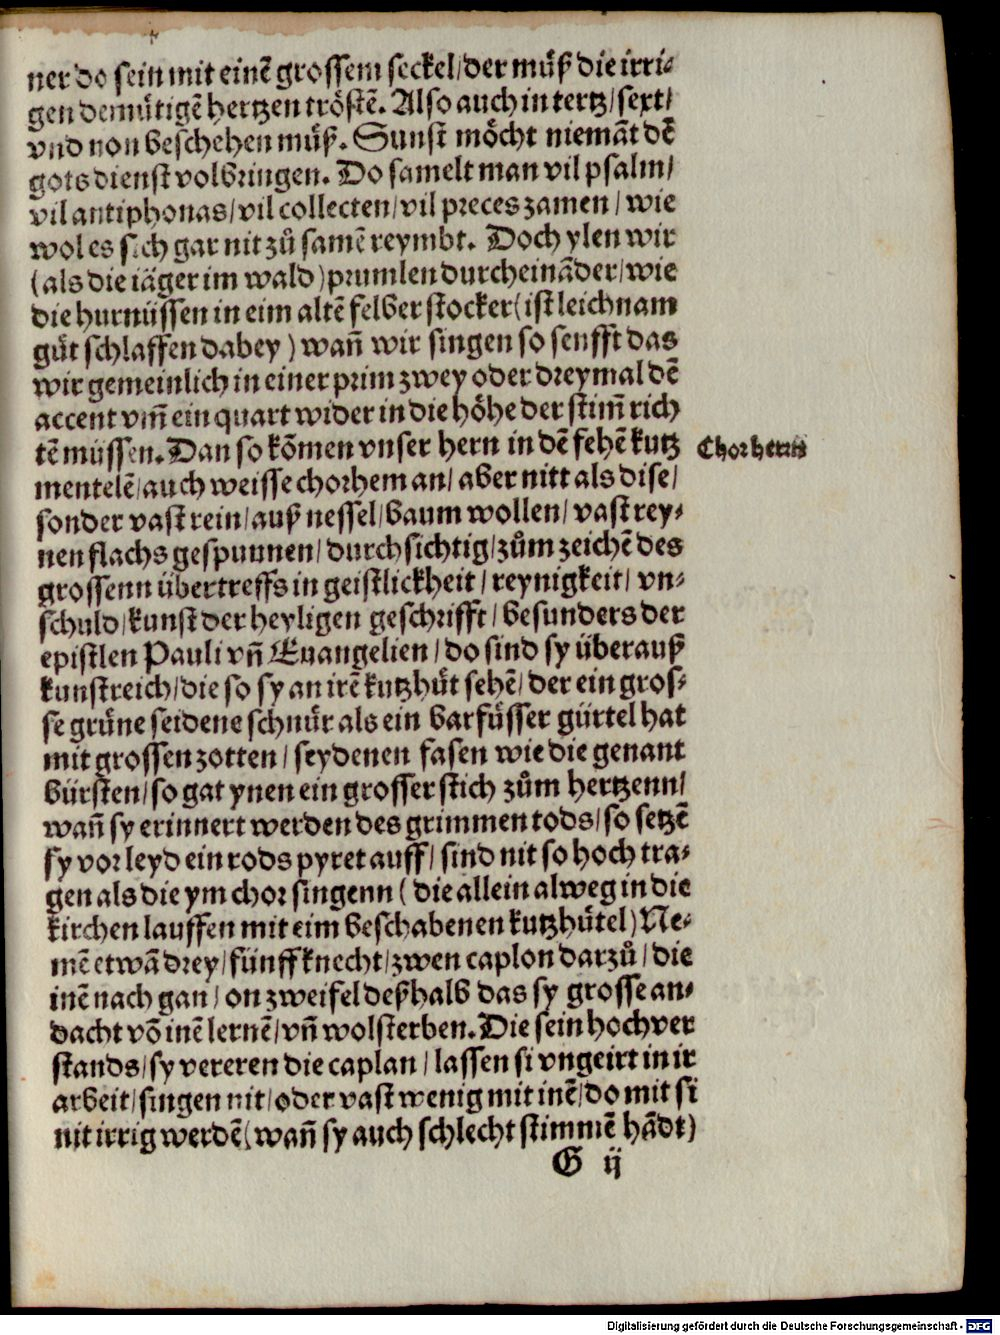 ner do sein mit einē grossem seckel/der můß die irri⸗
gen demütigē hertzen tröstē. Also auch in tertz/sext/
vnd non beschehen můß. Sunst möcht niemāt dē
gots dienst volbringen. Do samelt man vil psalm/
vil antiphonas/vil collecten/vil preces zamen/wie
wol es sich gar nit zů samē reymbt. Doch ylen wir
(als die iäger im wald) prumlen durcheināder/wie
die hurnüssen in eim altē felber stocker(ist leichnam
gůt schlaffen dabey) wañ wir singen so senfft das
wir gemeinlich in einer prim zwey oder dreymal dē
accent vm̄ ein quart wider in die höhe der stim̄ rich
tē müssen. Dan so kōmen vnser hern in dē fehē kutz
mentelē/auch weisse chorhem an/aber nitt als dise/
sonder vast rein/auß nessel/baum wollen/vast rey⸗
nen flachs gespunnen/durchsichtig/zům zeichē des
grossenn übertreffs in geistlickheit/reynigkeit/vn⸗
schuld/kunst der heyligen geschrifft/besunders der
epistlen Pauli vñ Euangelien/do sind sy überauß
kunstreich/die so sy an irē kutzhůt sehē/der ein gros⸗
se grüne seidene schnůr als ein barfůsser gürtel hat
mit grossen zotten/seydenen fasen wie die genant
bürsten/so gat ynen ein grosser stich zům hertzenn/
wañ sy erinnert werden des grimmen tods/so setzē
sy vor leyd ein rods pyret auff/sind nit so hoch tra⸗
gen als die ym chor singenn (die allein alweg in die
kirchen lauffen mit eim beschabenen kutzhütel) Ne⸗
mē etwā drey/fünff knecht/zwen caplon darzů/die
inē nach gan/on zweifel deßhalb das sy grosse an⸗
dacht vō inē lernē/vñ wolsterben. Die sein hochver
stands/sy vereren die caplan/lassen si vngeirt in ir
arbeit/singen nit/oder vast wenig mit inē/do mit si
nit irrig werdē(wañ sy auch schlecht stimmē hādt)
G ij
Chorherrn
Digitalisierung gefördert durch die Deutsche Forschungsgemeinschaft - DFG